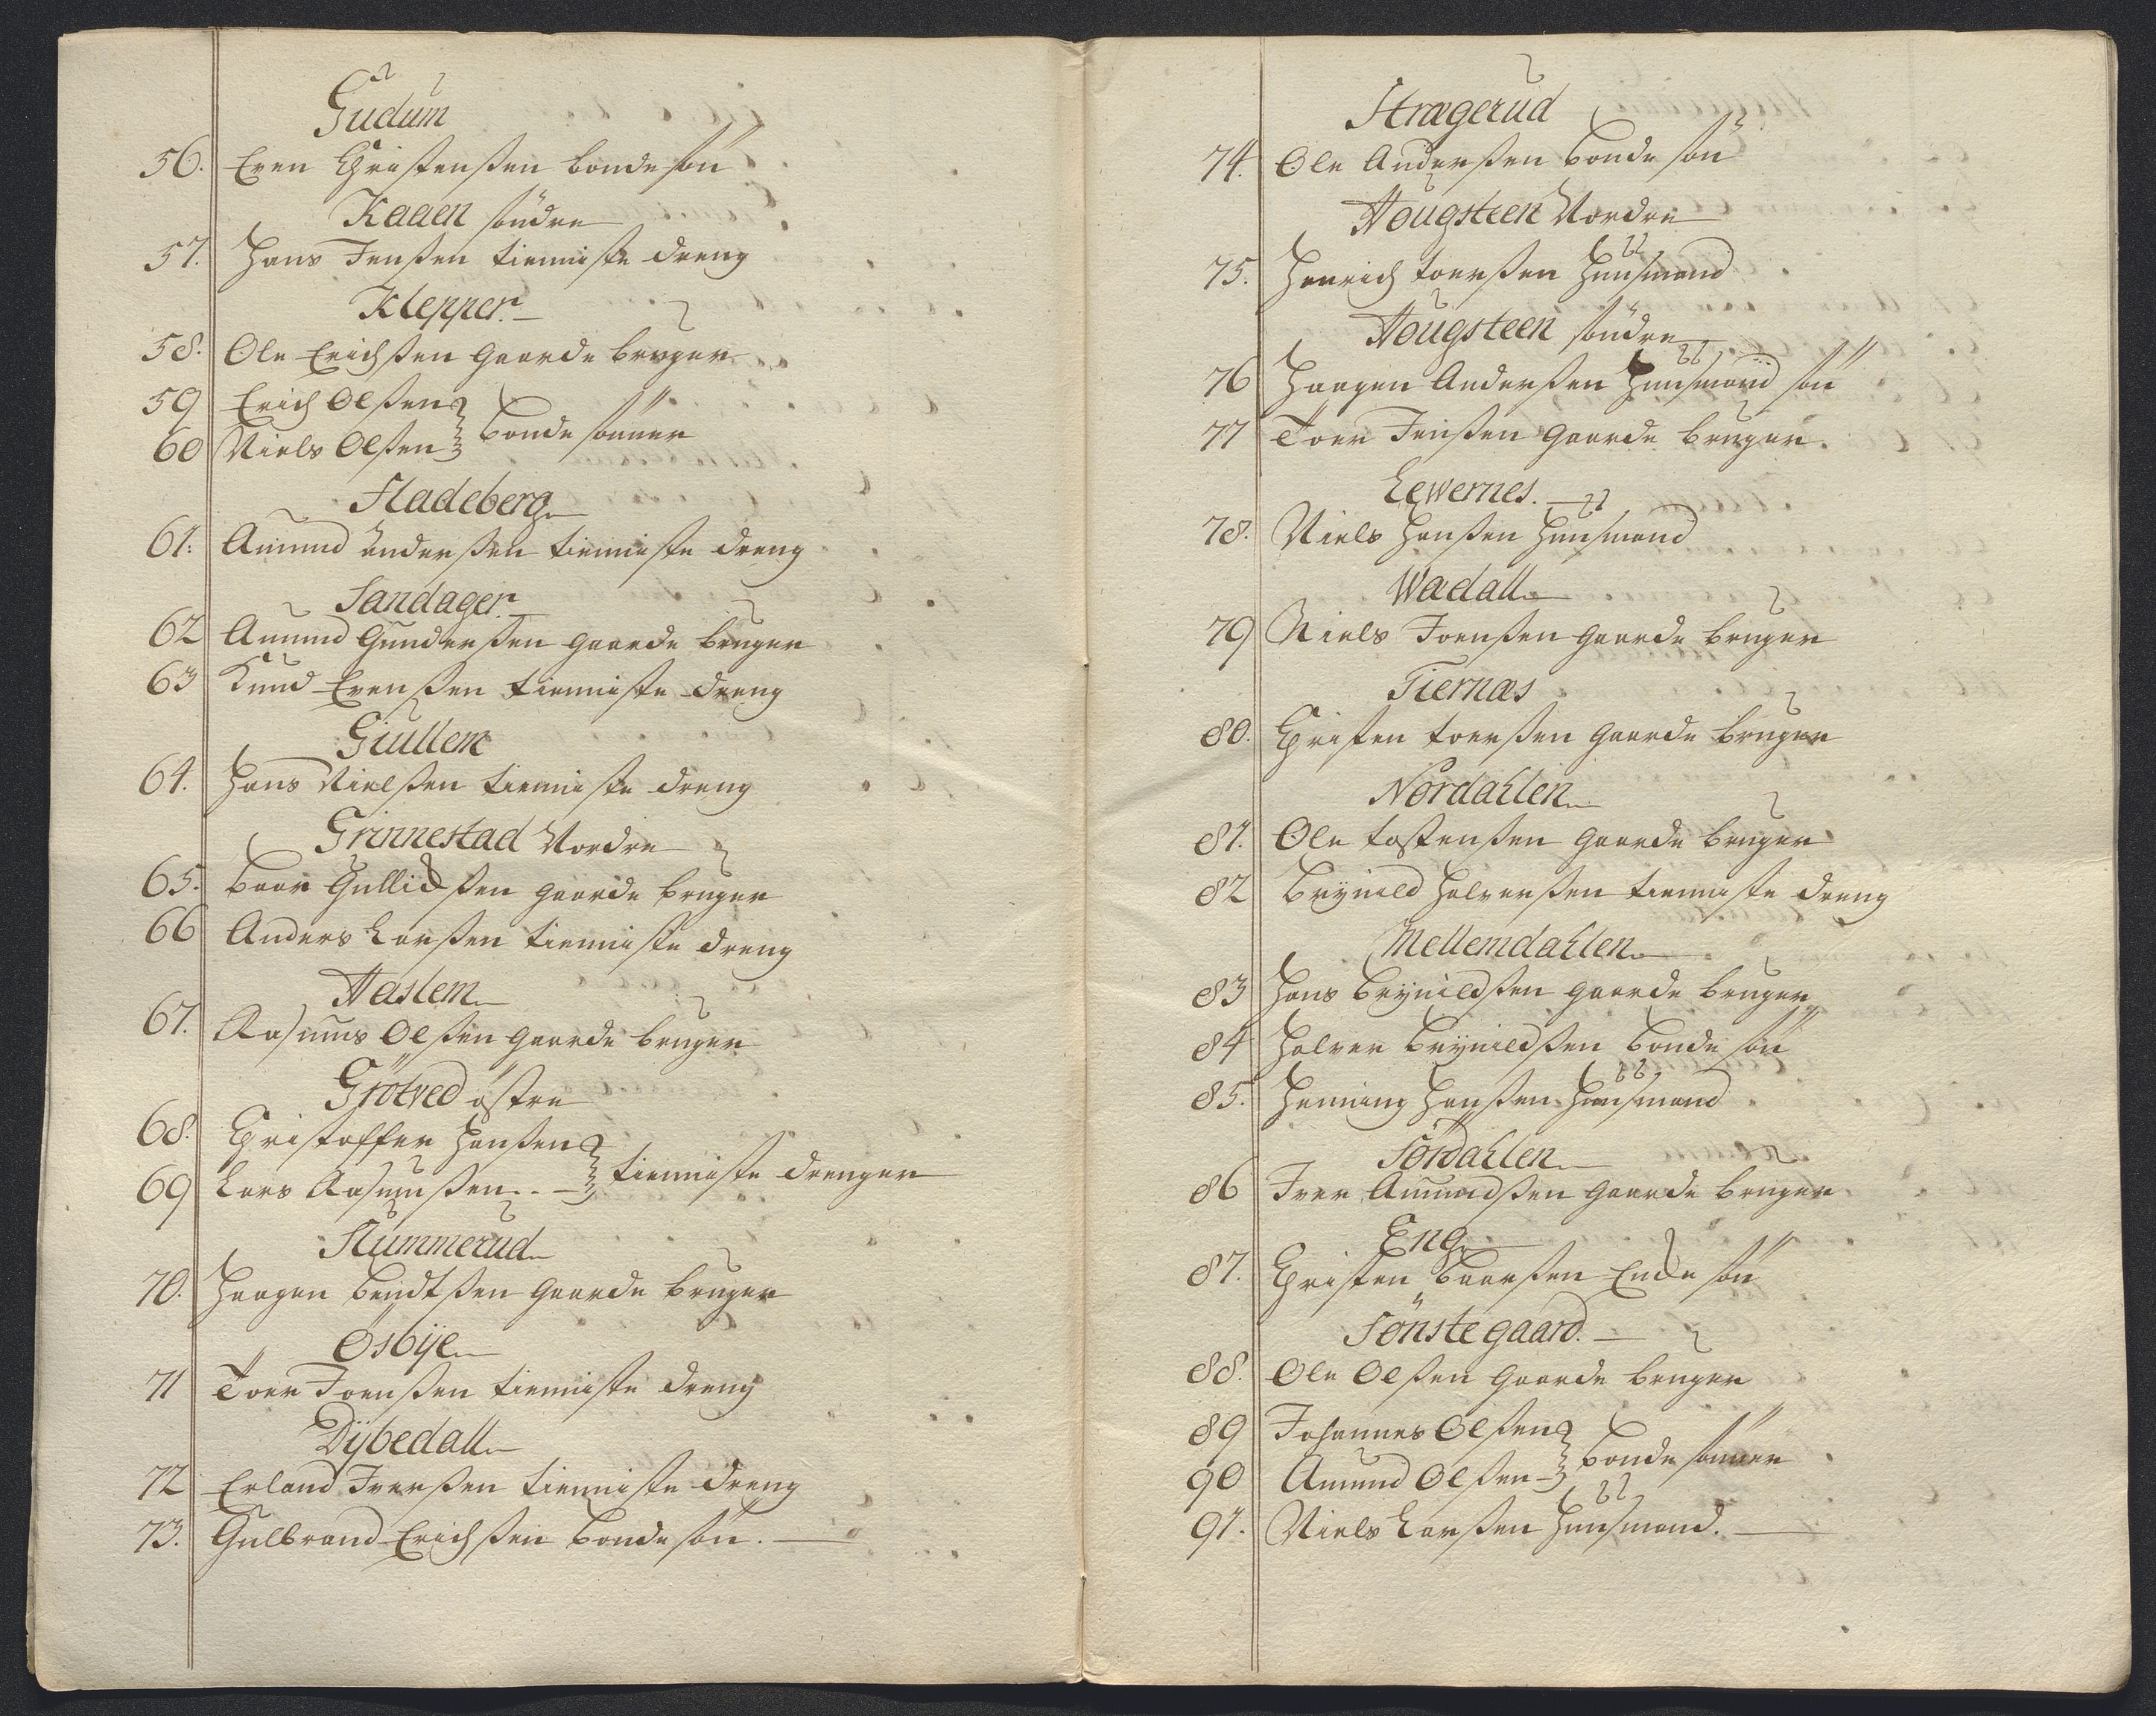 Gudum
56. Even Christensen bonde søn
Kaaen søndre
57. Hans Jensen tienniste dreng
Klepper.
58. Ole Erichsen gaarde bruger
59 Erich Olsen
60 Niels Olsen } bonde sønner
Sladeberg
61. Amund Andersen tienniste dreng
Sandager
62 Amund Gundersen gaarde bruger
63 Knud Evensen tienniste dreng
Giullem
64. Hans Nielsen tienniste dreng
Grinnestad Nordre
65. Baar Gullidsen gaarde bruger
66 Anders Larsen tienniste dreng
Haslem
67. Rasmus Olsen gaarde bruger
Grötved østre
68. Christoffer Hansen
69 Lars Rasmusen } tienniste drenger
Slummerud
70. Haagen Bendtsen gaarde bruger
Ösbÿe
71 Toer Joensen tienniste dreng
Dÿbedall
72 Erland Iversen tienniste dreng
73. Gulbrand Erichsen bonde søn.
Strægerud
74. Ole Andersen bonde søn
Hougsteen Nordre
75. Henrich Toersen Huusmand
Hougsteen søndre
76 Haagen Andersen Huusmand søn
77 Toer Jensen gaarde bruger.
Lewernes.
78. Niels Hansen Huusmand
Wadall
79 Niels Joensen gaarde bruger
Tiernæs
80. Christen Toersen gaarde bruger
Nordahlen
81. Ole Tostensen gaarde bruger
82 Brÿnild Halversen tienniste dreng
Mellemdahlen
83 Hans Brÿnildsen gaarde bruger
84 Halver Brÿnildsen bonde søn
85. Henning Hansen Huusmand
Sördahlen
86 Iver Amundsen gaarde bruger
Eng
87. Christen Baarsen Enke søn
Sönstegaard.
88. Ole Olsen gaarde bruger
89 Johannes Olsen
90 Amund Olsen } bonde sønner
91. Niels Larsen Huusmand.